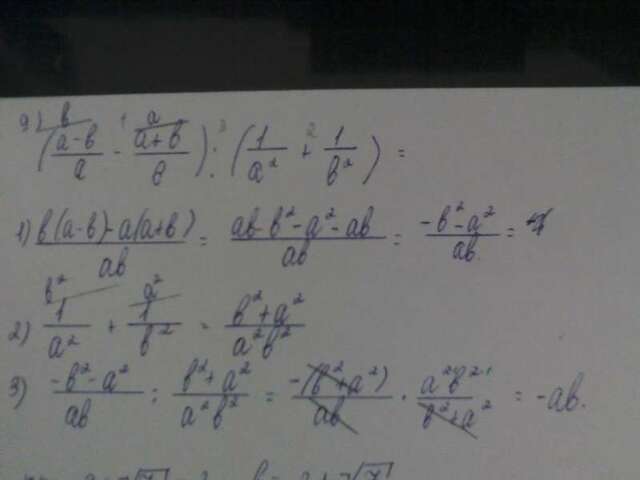 9) ((a-b)/a - (a+b)/b) : (1/a² + 1/b²) =
1) (b(a-b)-a(a+b))/ab = (ab-b²-a²-ab)/ab = (-b²-a²)/ab. =
2) 1/a² + 1/b² = (b²+a²)/a²b²
3) (-b²-a²)/ab : (b²+a²)/a²b² = -(b²+a²)/ab · a²b²/(b²+a²) = -ab.